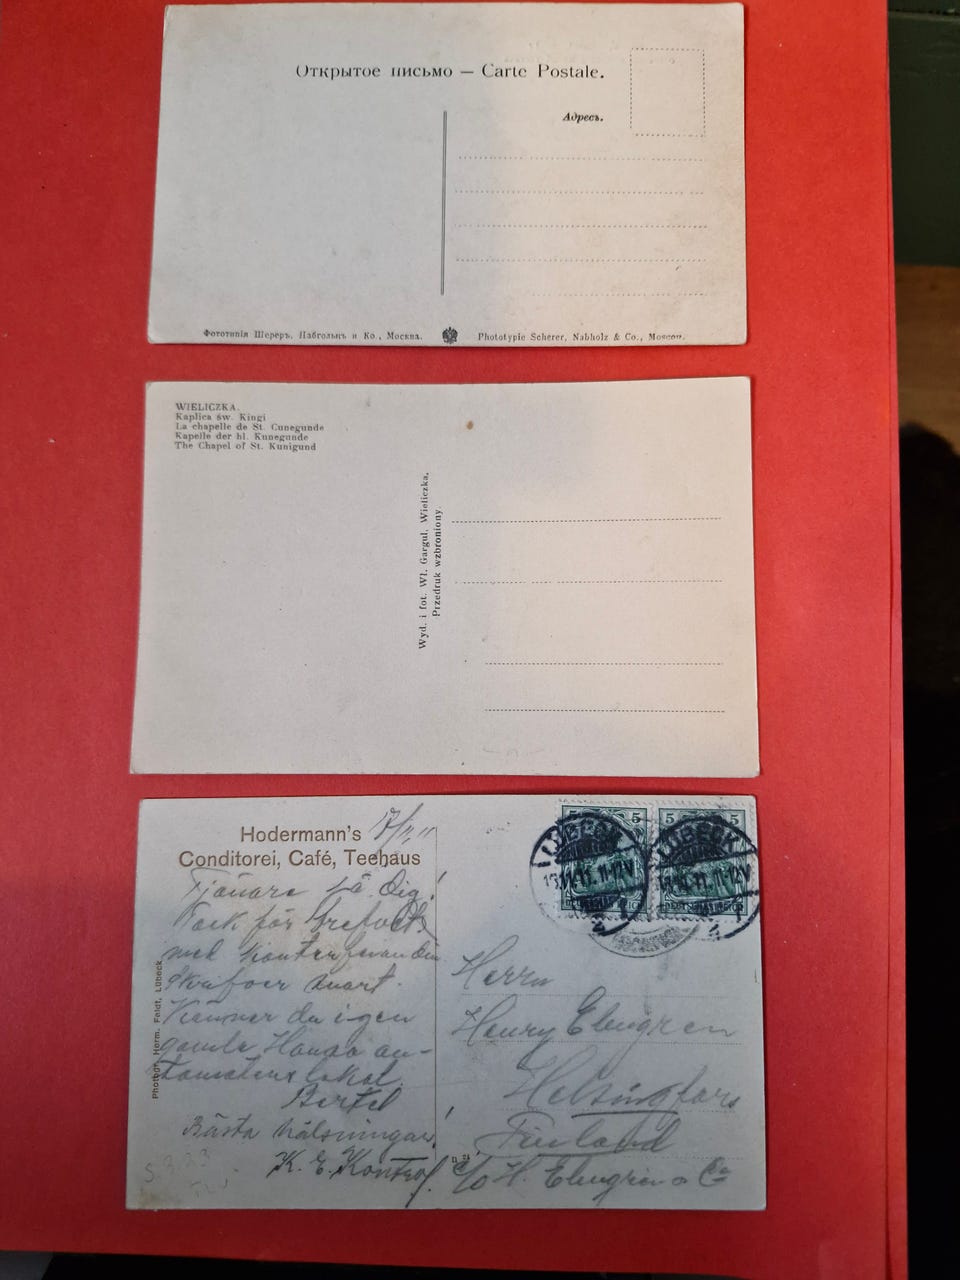 Открытое письмо — Carte Postale.
Адресъ.
Фототипія Шереръ, Набгольцъ и Ко., Москва.
Phototypie Scherer, Nabholz & Co., Moscou.
WIELICZKA.
Kaplica św. Kingi
La chapelle de St. Cunegunde
Kapelle der hl. Kunegunde
The Chapel of St. Kunigund
Wyd. i fot. Wł. Gargul, Wieliczka.
Przedruk wzbroniony.
Hodermann's
Conditorei, Café, Teehaus
Tjänare på Dig!
Tack för brefvet
med
skrifver snart.
Känner du igen
gamla Hansa au-
tomatens lokal.
Bertel
Bästa hälsningar!
K. E.
Photogr. Herm. Feldt, Lübeck
5
5
5
LÜBECK
LÜBECK
11-12V
11-12V
Herrn
Henry Elmgren
Helsingfors
Finland
c/o H. Elmgren & Co